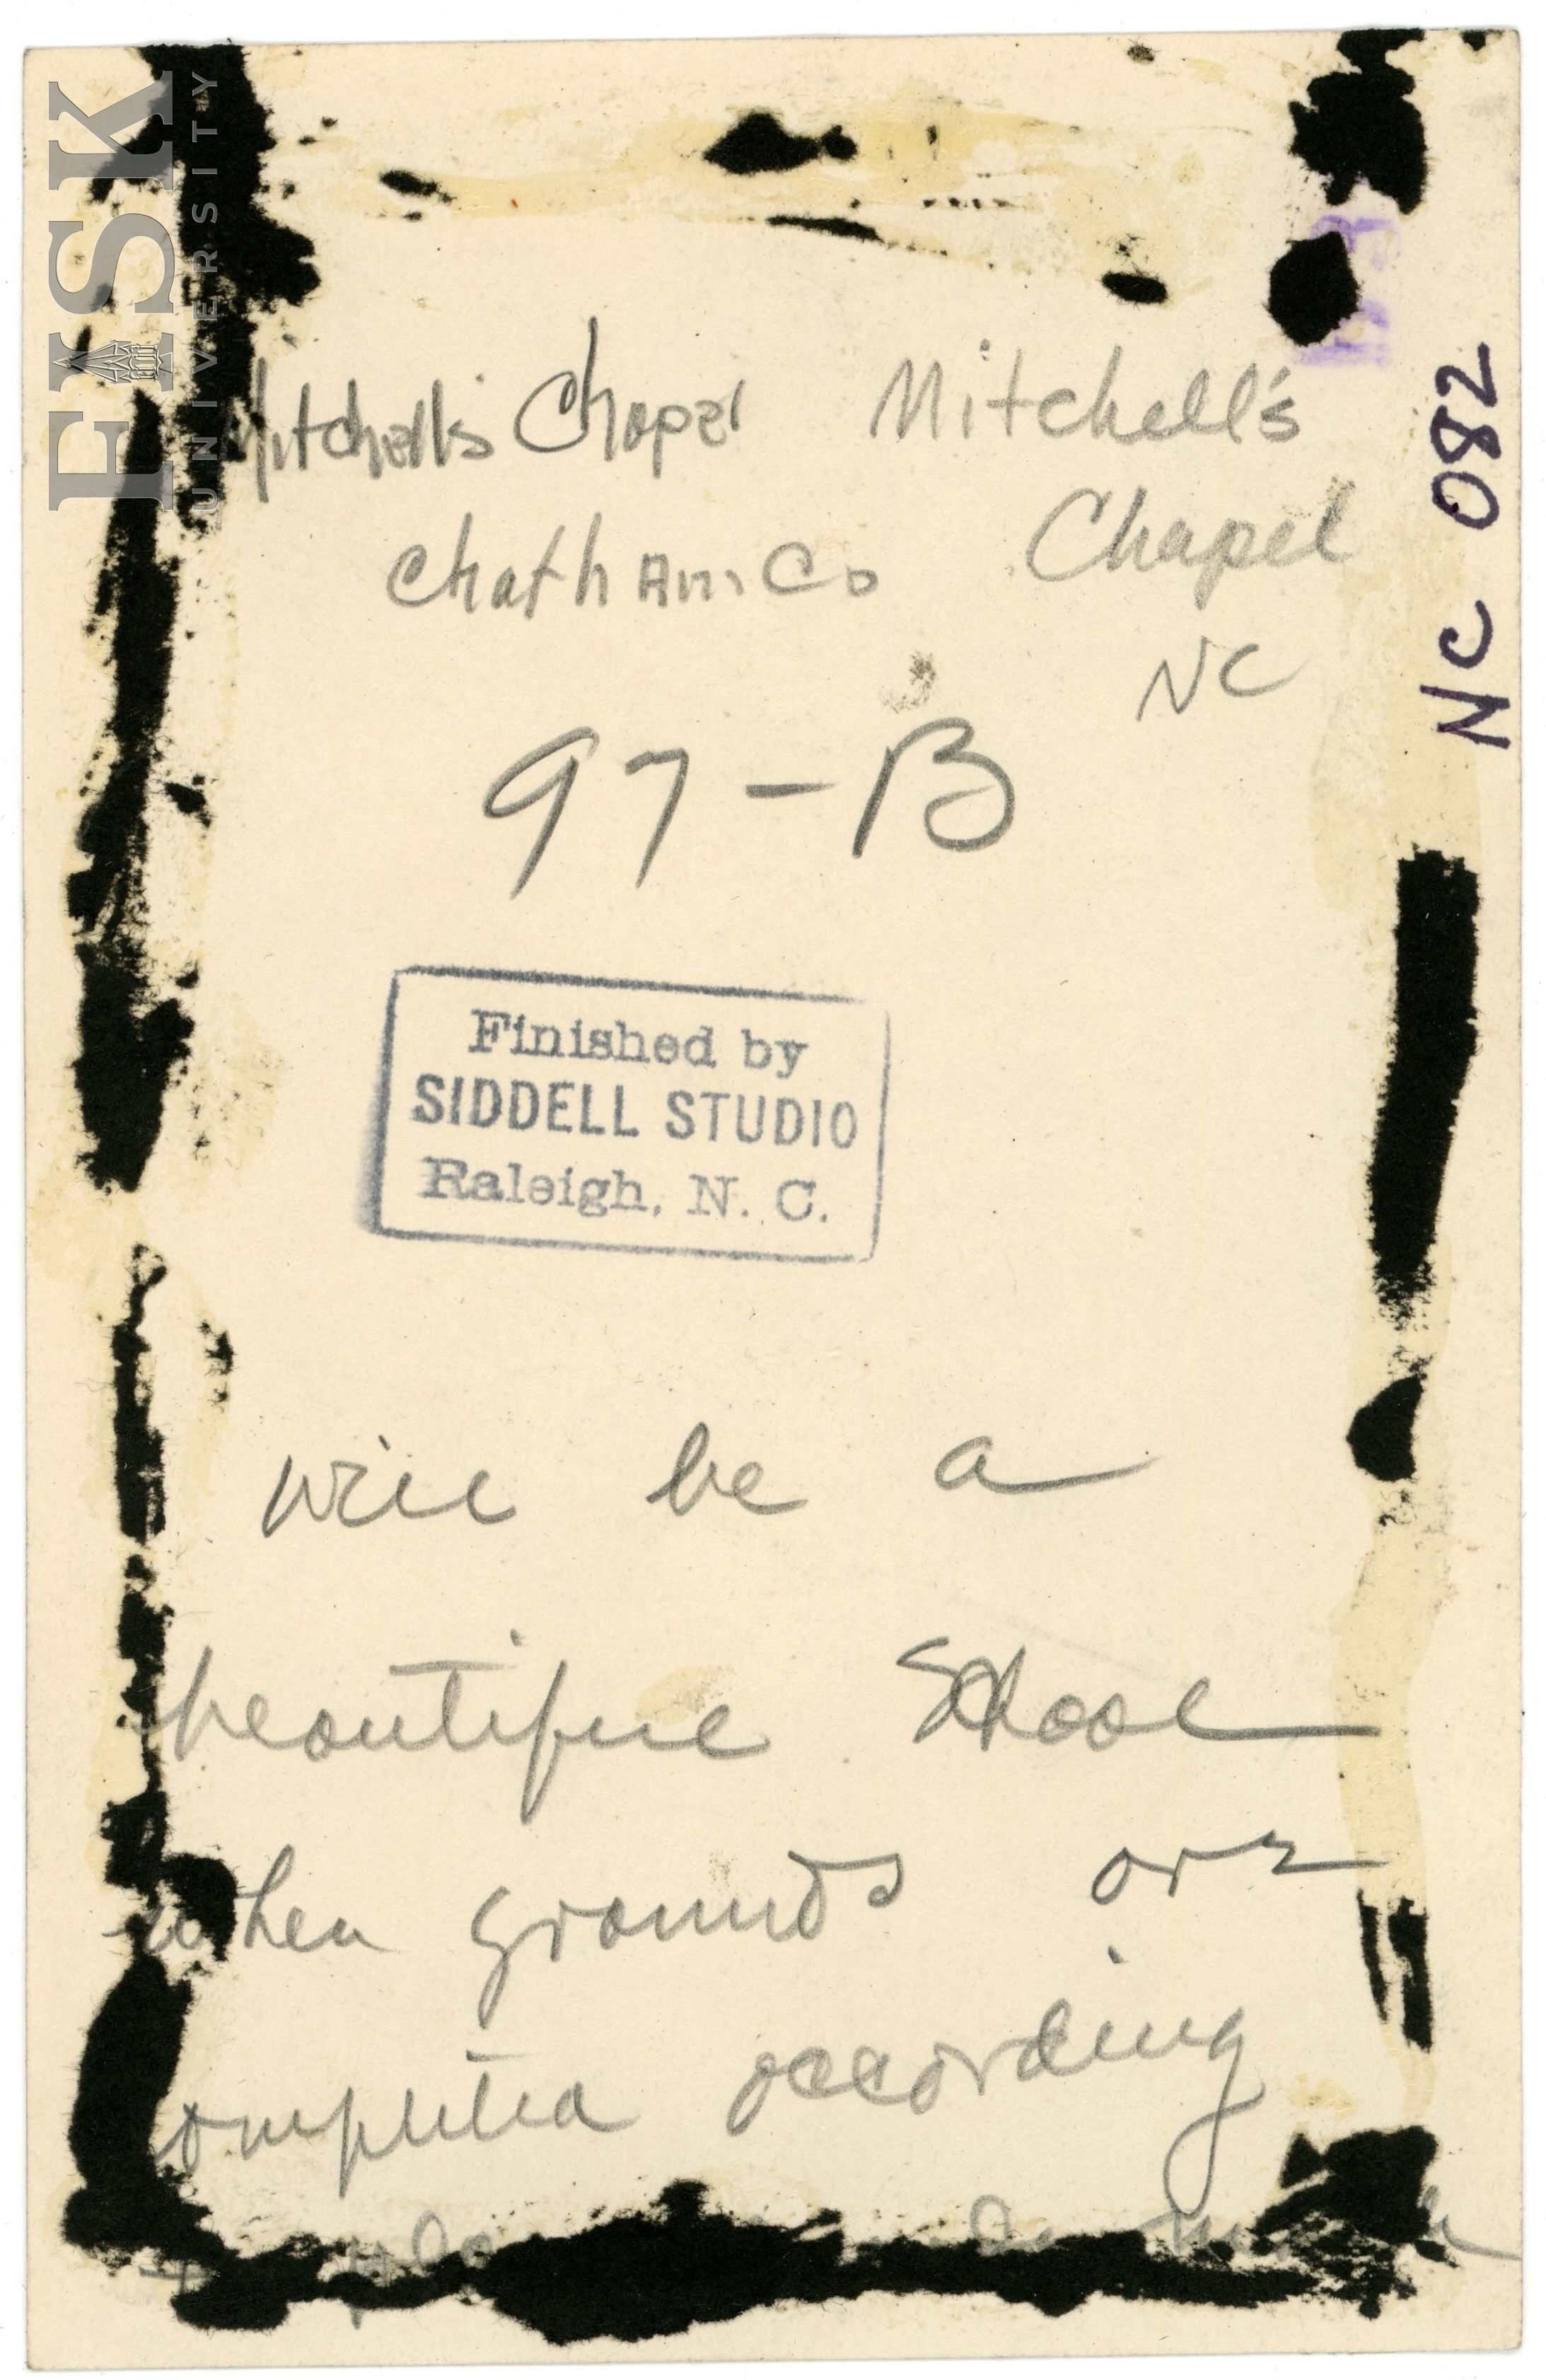 FISK
UNIVERSITY
NC 082
Mitchell's Chapel
Chatham Co
Mitchell's
Chapel
NC
97-B
Finished by
SIDDELL STUDIO
Raleigh, N. C.
will be a
beautiful School
when grounds are
completed according